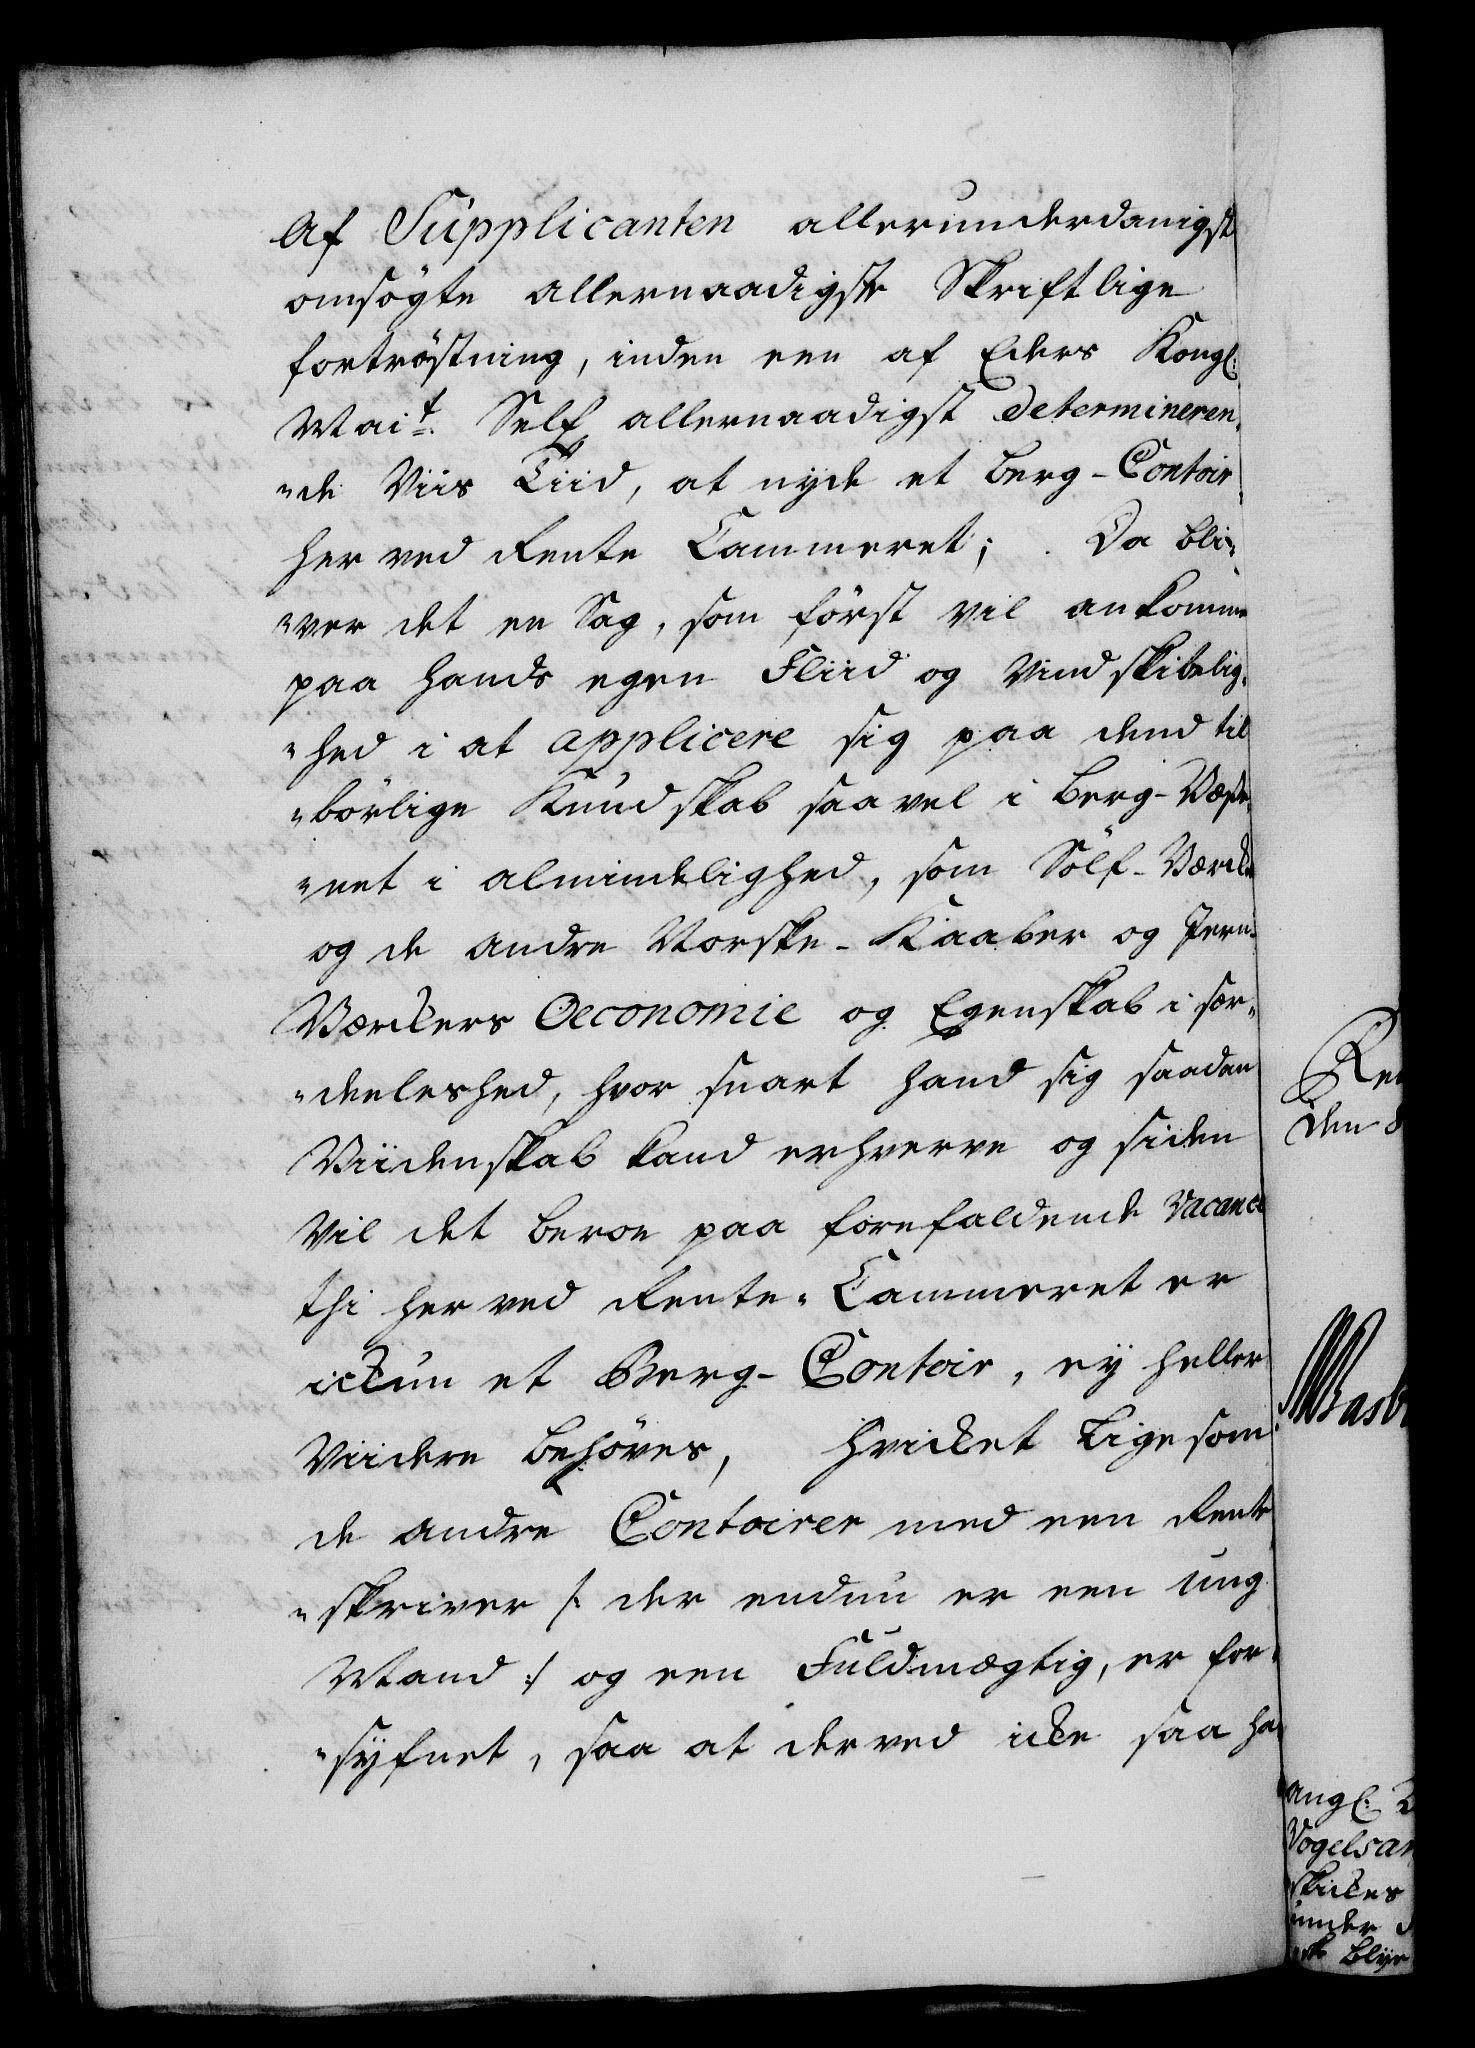 af Supplicanten allerunderdanigst
omsögte allernaadigste Skriftlige
fortröstning, inden een af Eders Kongl:
Mai.t Self allernaadigst determineren-
"de Viis Tiid, at nyde et Berg-Contoir
her ved Rente Cammeret; Da bli-
"ver det en Sag, som först vil ankomme
paa hands egen Fliid og Vindskibelig-
"hed i at applicere sig paa dend til
"börlige Kundskab saavel i Berg-Væse-
"net i almindelighed, som Sölf-Værcke
og de andre Norske-Kaaber og Jern-
Værckers Oeconomie og Egenskab i sær-
"deeleshed, hvor snart hand sig saadan
Viidenskab kand erhverve og siden
Vil det beroe paa forefaldende Vacance
thi her ved Rente-Cammeret er
ickun et Berg-Contoir, ey heller
Viidere behöves, hvicket Ligesom
de andre Contoirer med een Rente
"skriver /: der endnu er een ung
Mand :/ og een Fuldmægtig, er for-
"syfnet, saa at derved icke saa ha-
Ren
den 8
angl:
Vogelsan
skickes
under
Blyr